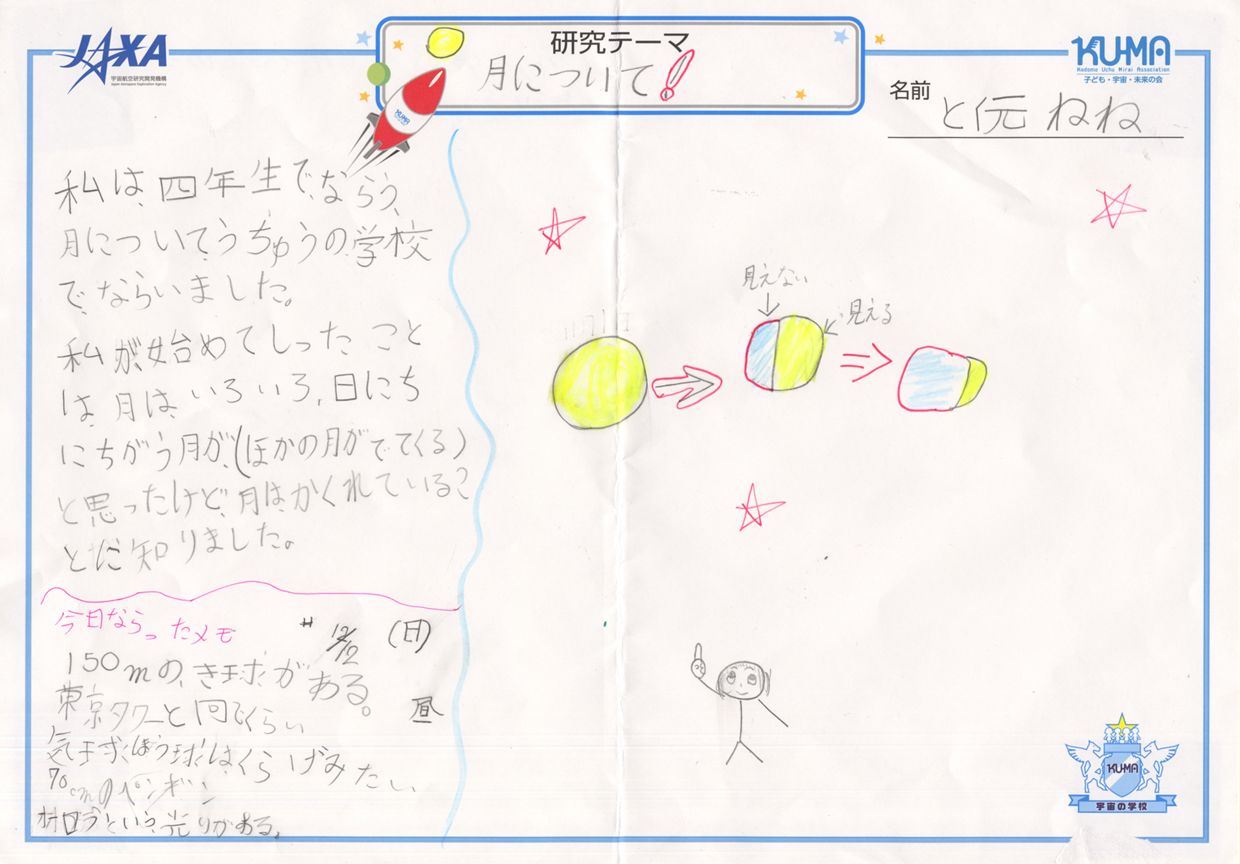 JAXA
宇宙航空研究開発機構
Japan Aerospace Exploration Agency
研究テーマ
月について!
KUMA
KU-MA
Kodomo Uchu Mirai Association
子ども・宇宙・未来の会
名前
と伝 ねね
私は、四年生でならう、
月について、うちゅうの学校
でならいました。
私が始めてしったこと
は、月は、いろいろ、日にち
にちがう月が、(ほかの月がでてくる)
と思ったけど、月は、かくれている?
とだ知りました。
見えない
見える
今日ならったメモ
(日)
150mの、き球がある。
昼
東京タワーと同じくらい
気球、ぼう球は、くらげみたい
70cmのペンギン
オーロラという、光りがある。
KU-MA
宇宙の学校